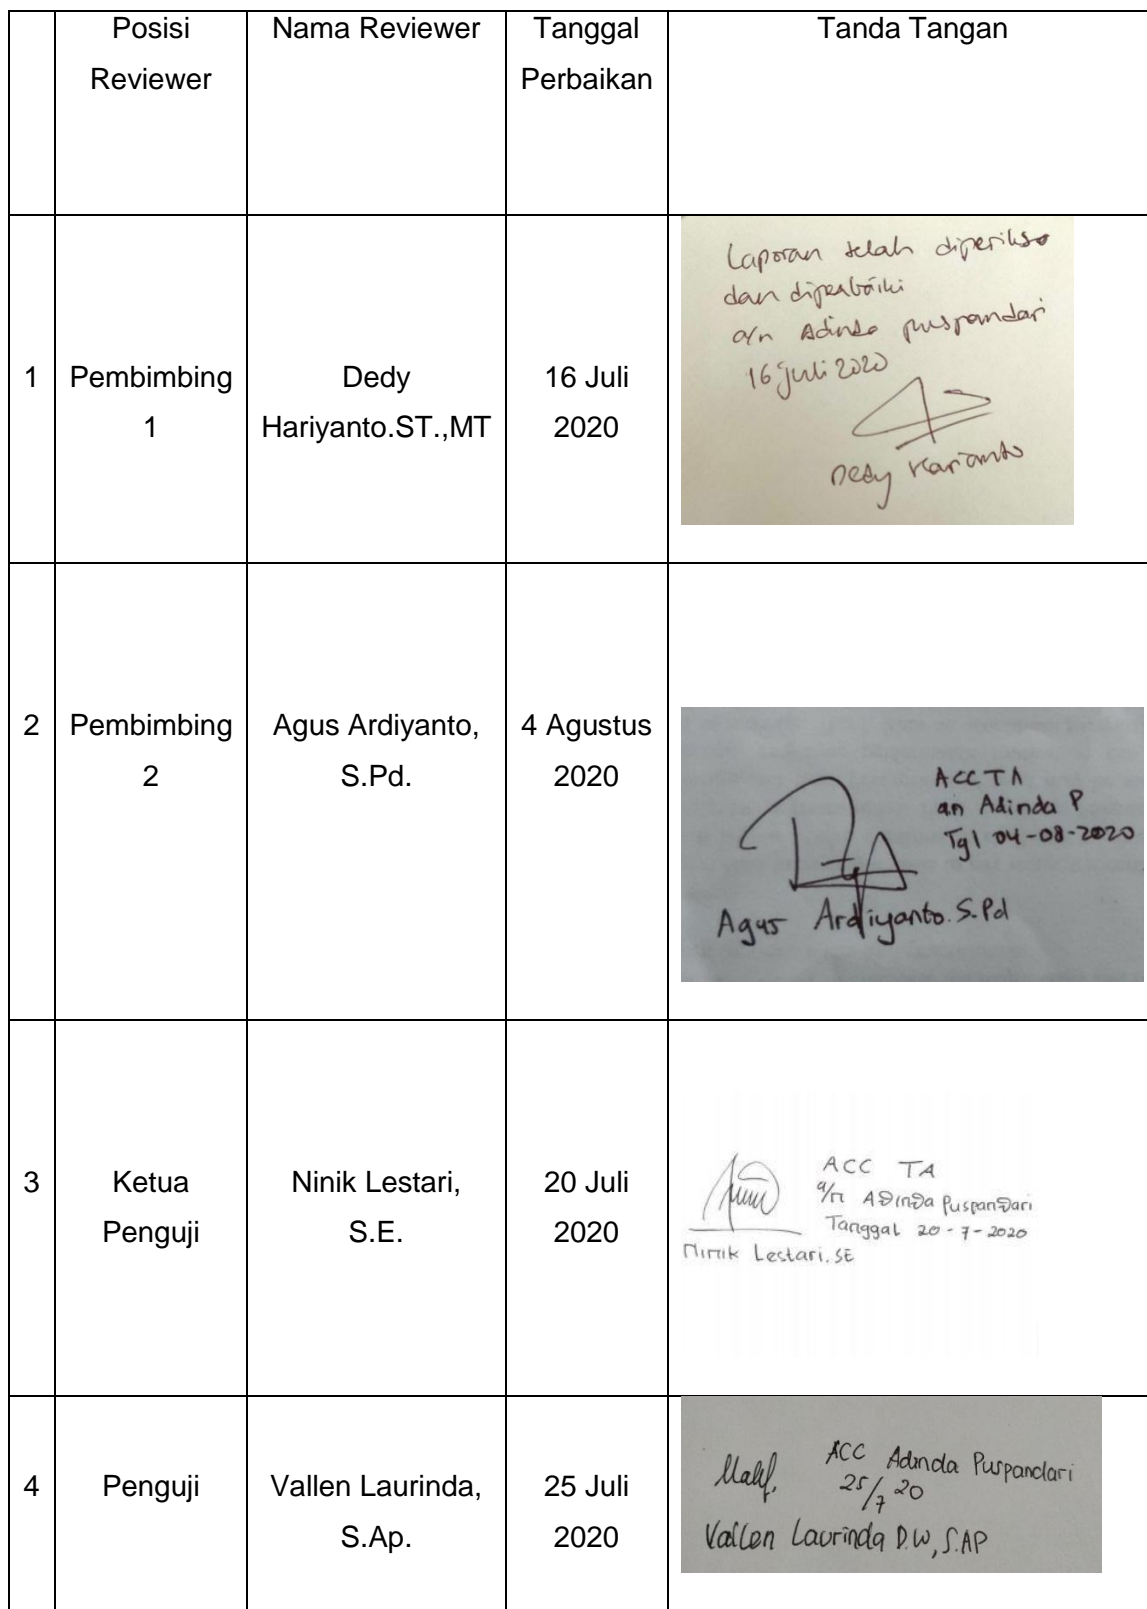 Posisi Reviewer
Nama Reviewer
Tanggal Perbaikan
Tanda Tangan
1
Pembimbing
1
Dedy
Hariyanto.ST.,MT
16 Juli
2020
Laporan telah diperiksa
dan diperbaiki
a/n Adinda puspandari
16 Juli 2020
Dedy Harianto
2
Pembimbing
2
Agus Ardiyanto,
S.Pd.
4 Agustus
2020
ACC TA
an Adinda P
Tgl 04-08-2020
Agus Ardiyanto. S.Pd
3
Ketua
Penguji
Ninik Lestari,
S.E.
20 Juli
2020
ACC TA
a/n Adinda Puspandari
Tanggal 20-7-2020
Ninik Lestari. SE
4
Penguji
Vallen Laurinda,
S.Ap.
25 Juli
2020
ACC Adinda Puspandari
25/7 20
Vallen Laurinda D.W, S.AP